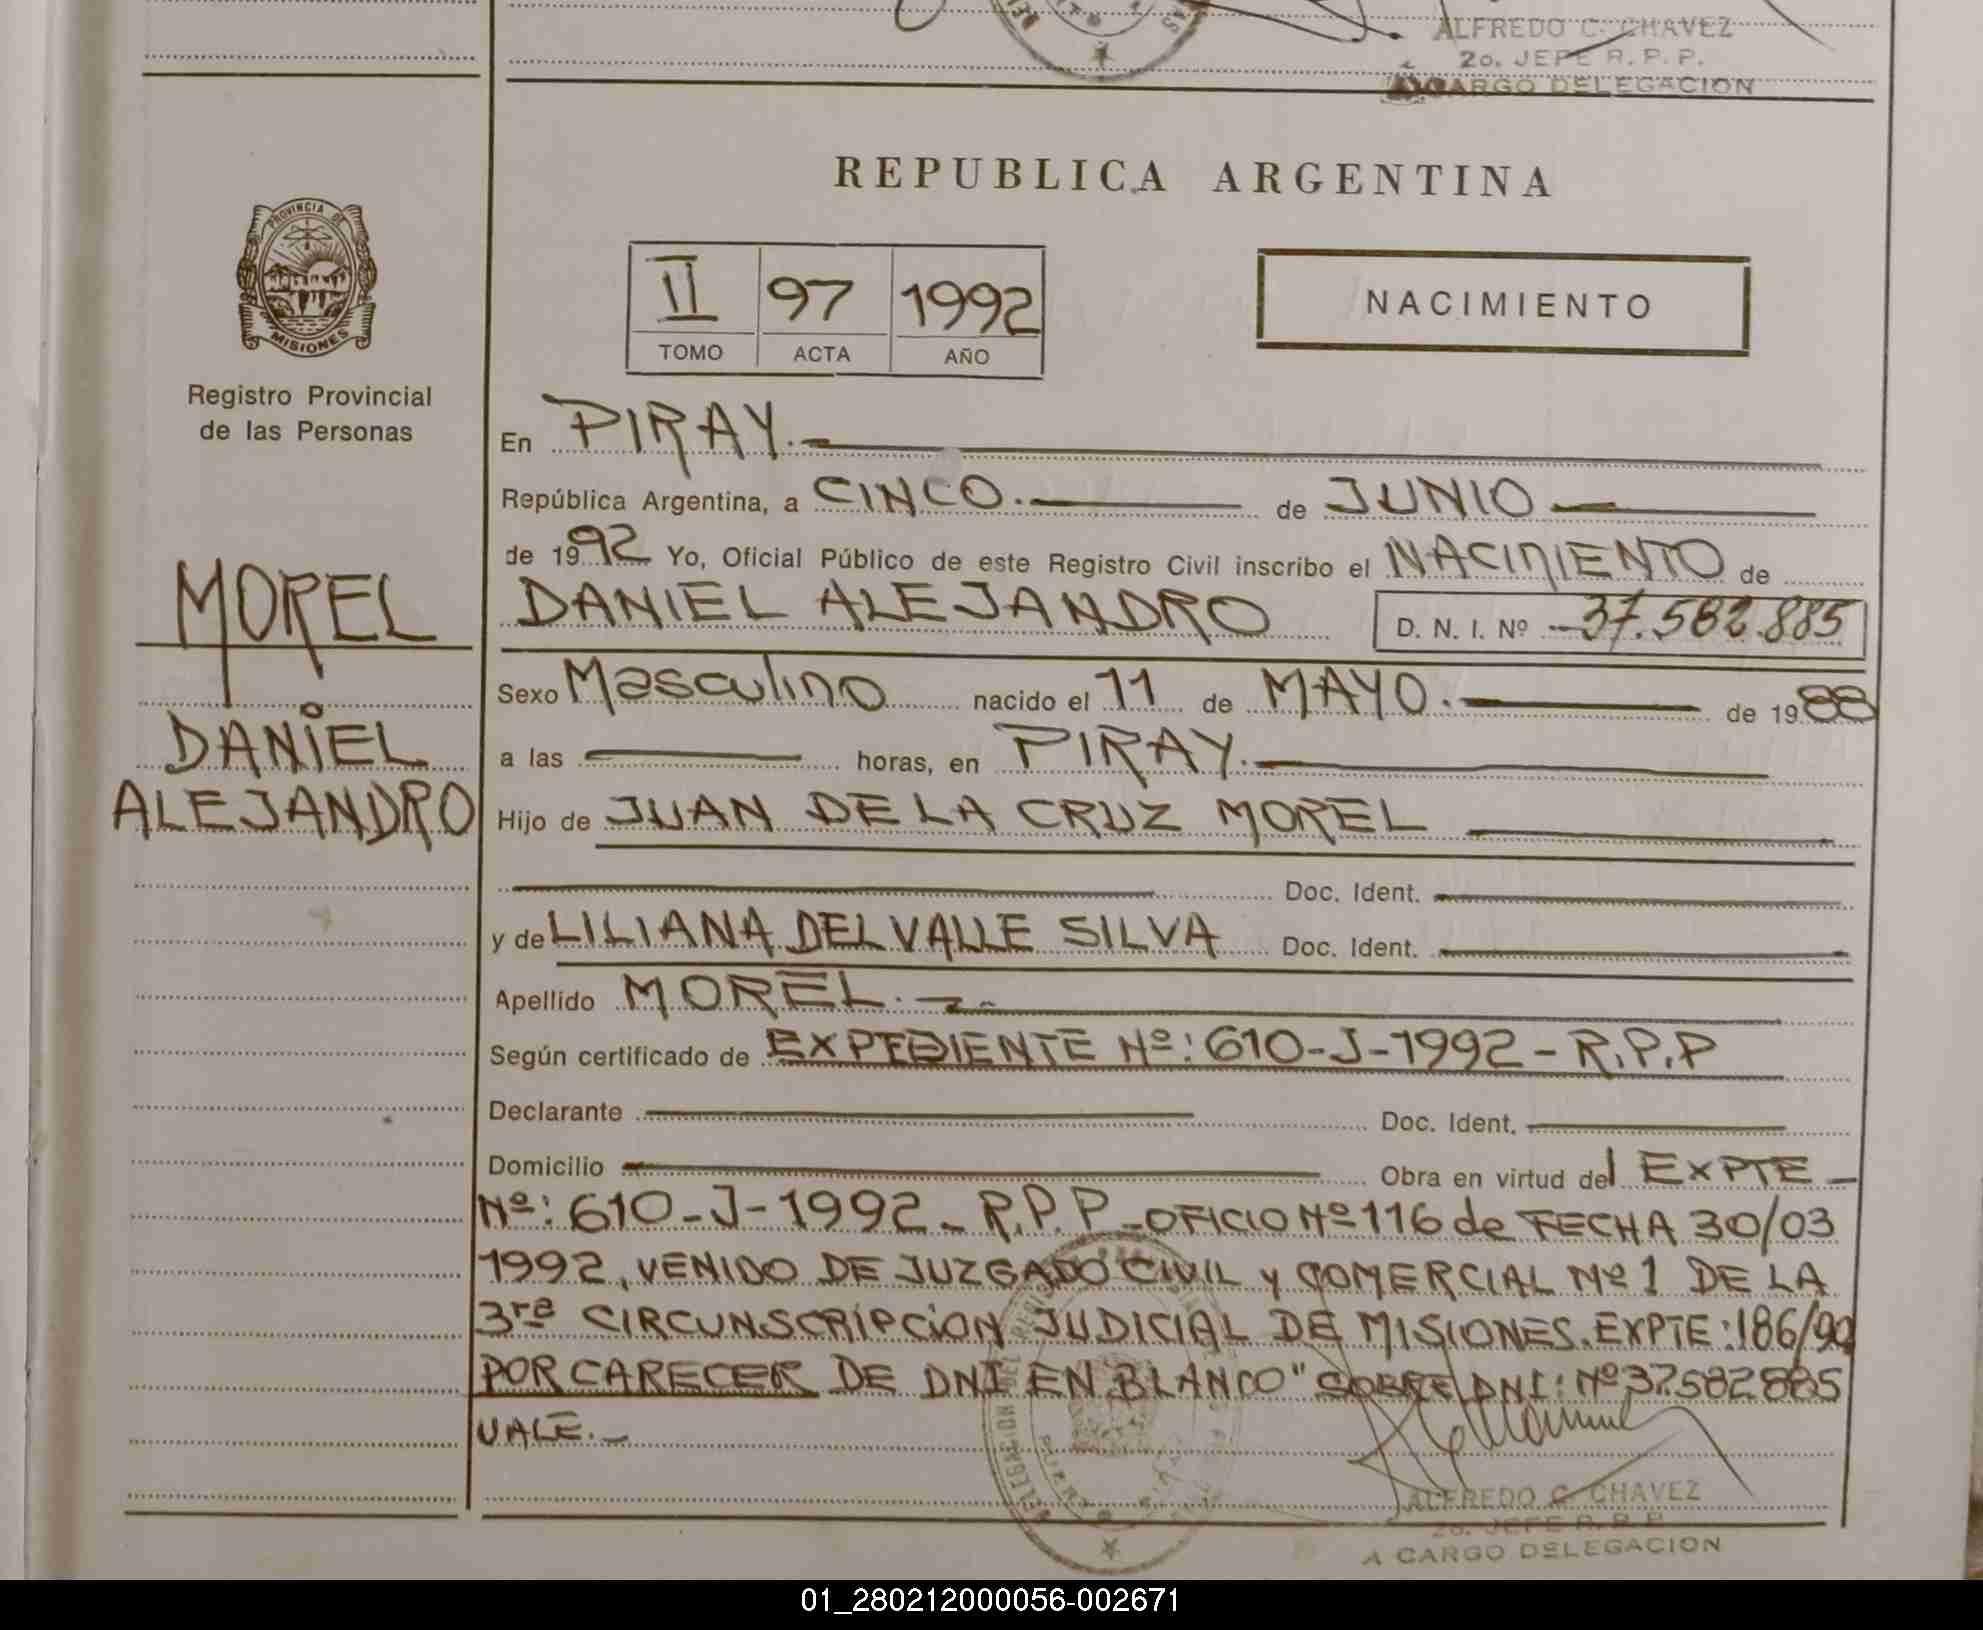 ALFREDO C. CHAVEZ
2o. JEFE R. P. P.
A CARGO DELEGACION
REPUBLICA ARGENTINA
PROVINCIA DE
MISIONES
Registro Provincial
de las Personas
II 97 1992
TOMO ACTA AÑO
NACIMIENTO
En PIRAY.-
República Argentina, a CINCO.- de JUNIO
de 1992 Yo, Oficial Público de este Registro Civil inscribo el NACIMIENTO de
DANIEL ALEJANDRO D. N. I. Nº 37.582.885
MOREL
DANIEL
ALEJANDRO
Sexo Masculino nacido el 11 de MAYO. de 1988
a las horas, en PIRAY.
Hijo de JUAN DE LA CRUZ MOREL
Doc. Ident.
y de LILIANA DEL VALLE SILVA Doc. Ident.
Apellido MOREL.-
Según certificado de EXPEDIENTE Nº: 610-J-1992-R.P.P
Declarante Doc. Ident.
Domicilio Obra en virtud del EXPTE-
Nº: 610-J-1992-R.P.P-OFICIO Nº 116 de FECHA 30/03
1992, VENIDO DE JUZGADO CIVIL y COMERCIAL Nº 1 DE LA
3ra CIRCUNSCRIPCION JUDICIAL DE MISIONES. EXPTE: 186/90
POR CARECER DE DNI EN BLANCO" SOBRE DNI: Nº 37582885
VALE.-
DELEGACION
ALFREDO C. CHAVEZ
2o. JEFE R. P. P.
A CARGO DELEGACION
01_280212000056-002671